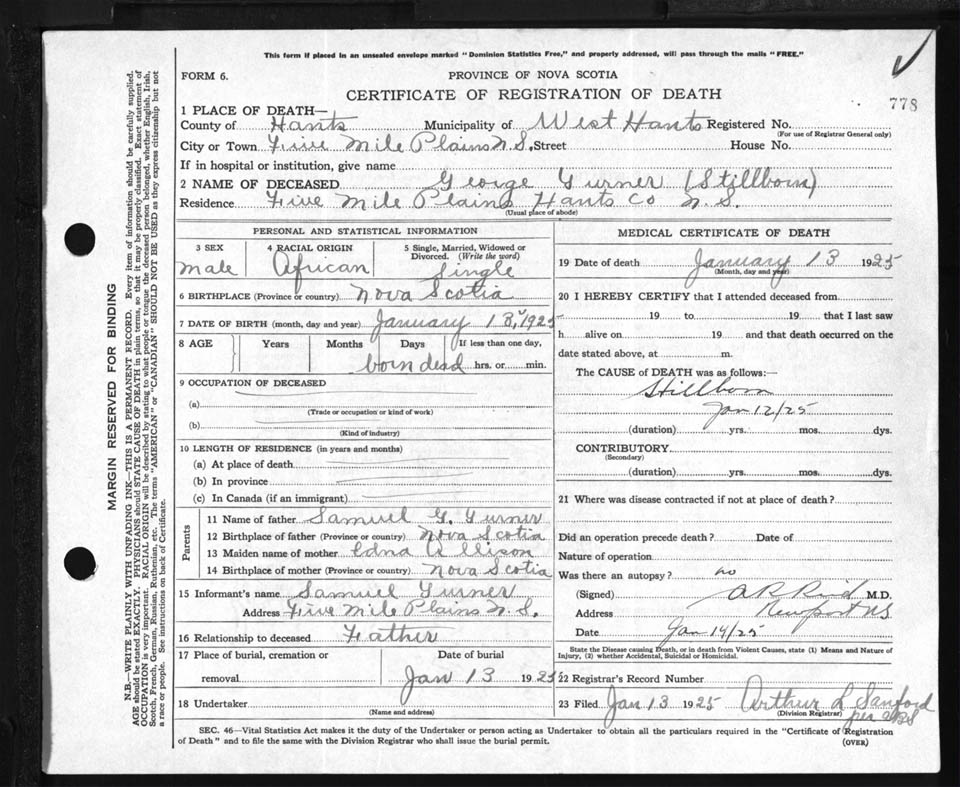 This form if placed in an unsealed envelope marked "Dominion Statistics Free," and properly addressed, will pass through the mails "FREE."
FORM 6.
PROVINCE OF NOVA SCOTIA
CERTIFICATE OF REGISTRATION OF DEATH
778
1 PLACE OF DEATH—
County of Hants Municipality of West Hants Registered No.
(For use of Registrar General only)
City or Town Five Mile Plains N.S. Street House No.
If in hospital or institution, give name
2 NAME OF DECEASED George Turner (Stillborn)
Residence Five Mile Plains Hants Co N.S.
(Usual place of abode)
PERSONAL AND STATISTICAL INFORMATION
3 SEX
male
4 RACIAL ORIGIN
African
5 Single, Married, Widowed or Divorced. (Write the word)
Single
6 BIRTHPLACE (Province or country) Nova Scotia
7 DATE OF BIRTH (month, day and year) January 13, 1925
8 AGE Years Months Days If less than one day,
born dead hrs. or min.
9 OCCUPATION OF DECEASED
(a)
(Trade or occupation or kind of work)
(b)
(Kind of industry)
10 LENGTH OF RESIDENCE (in years and months)
(a) At place of death
(b) In province
(c) In Canada (if an immigrant)
Parents
11 Name of father Samuel G. Turner
12 Birthplace of father (Province or country) Nova Scotia
13 Maiden name of mother Edna Allison
14 Birthplace of mother (Province or country) Nova Scotia
15 Informant's name Samuel Turner
Address Five Mile Plains N.S.
16 Relationship to deceased Father
17 Place of burial, cremation or
removal
Date of burial
Jan 13 1925
18 Undertaker
(Name and address)
MEDICAL CERTIFICATE OF DEATH
19 Date of death January 13 1925
(Month, day and year)
20 I HEREBY CERTIFY that I attended deceased from
19 to 19 that I last saw
h alive on 19 and that death occurred on the
date stated above, at m.
The CAUSE of DEATH was as follows:—
Stillborn
Jan 12/25
(duration) yrs. mos. dys.
CONTRIBUTORY
(Secondary)
(duration) yrs. mos. dys.
21 Where was disease contracted if not at place of death?
Did an operation precede death? Date of
Nature of operation
Was there an autopsy? no
(Signed) A R Reid M.D.
Address Newport NS
Date Jan 14/25
State the Disease causing Death, or in death from Violent Causes, state (1) Means and Nature of
Injury, (2) whether Accidental, Suicidal or Homicidal.
22 Registrar's Record Number
23 Filed Jan 13 1925 Arthur L Sanford
(Division Registrar)
per
SEC. 46—Vital Statistics Act makes it the duty of the Undertaker or person acting as Undertaker to obtain all the particulars required in the "Certificate of Registration
of Death" and to file the same with the Division Registrar who shall issue the burial permit.
(OVER)
MARGIN RESERVED FOR BINDING
N.B.—WRITE PLAINLY WITH UNFADING INK—THIS IS A PERMANENT RECORD. Every item of information should be carefully supplied.
AGE should be stated EXACTLY. PHYSICIANS should STATE CAUSE OF DEATH in plain terms, so that it may be properly classified. Exact statement of
OCCUPATION is very important. RACIAL ORIGIN will be described by stating to what people or tongue the deceased person belonged, whether English, Irish,
Scotch, French, German, Russian, Ruthenian, etc. The terms "AMERICAN" or "CANADIAN" SHOULD NOT BE USED as they express citizenship but not
a race or people. See instructions on back of Certificate.